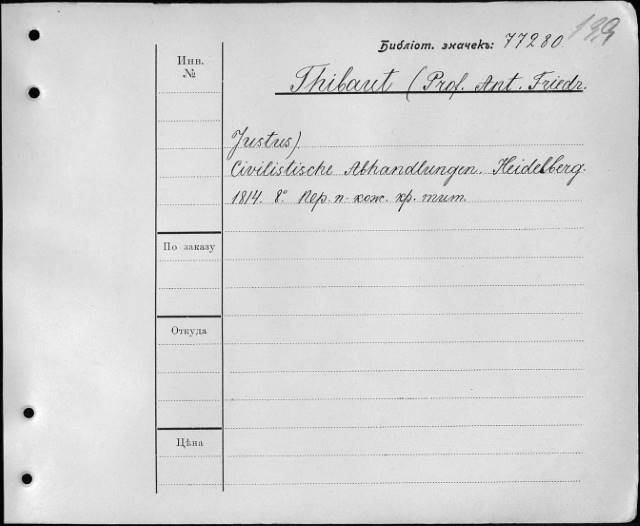 199
Библіот. значекъ: 77280.
Инв.
№
Thibaut (Prof. Ant. Friedr.
Justus).
Civilistische Abhandlungen. Heidelberg.
1814. 8° Пер. п-кож. кр. тит.
По заказу
Откуда
Цѣна